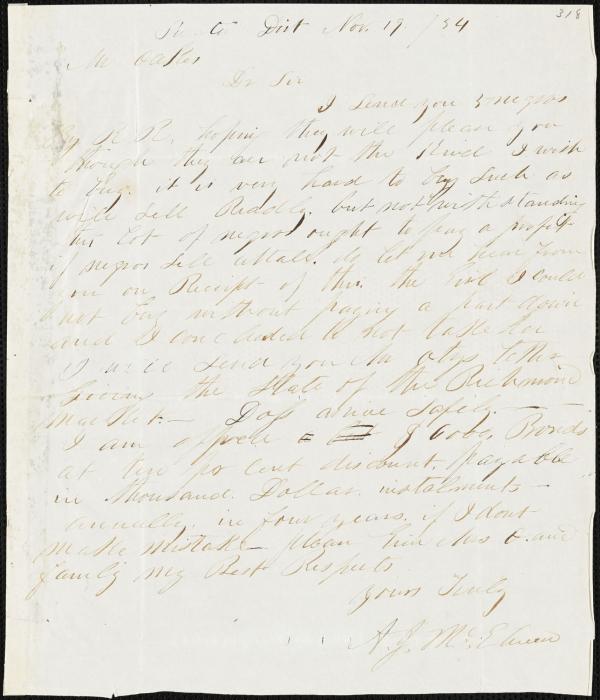 318
Dist Nov. 19 /54
Mr Oakes
Dr Sir
I Send you 3 negros
by R R. hoping they will please you
though they are not the kind I wish
to buy. it is very hard to buy such as
will sell Readly. but notwithstanding
this lot of negros ought to pay a profit
if negros sell attall. do let me hear from
you on Receipt of this. the Girl I could
not buy without paying a part down
and I concluded to not take her
I will send you Mr otys letter
Giving the State of the Richmond
Market — arive safely —
I am offered $6000. Bonds
at ten pr cent discount. payable
in thousand. Dollar. instalments —
annually. in four years. if I dont
make mistake — pleas give Mrs O. and
family my Best Respects
yours Truly
A. J. McElveen